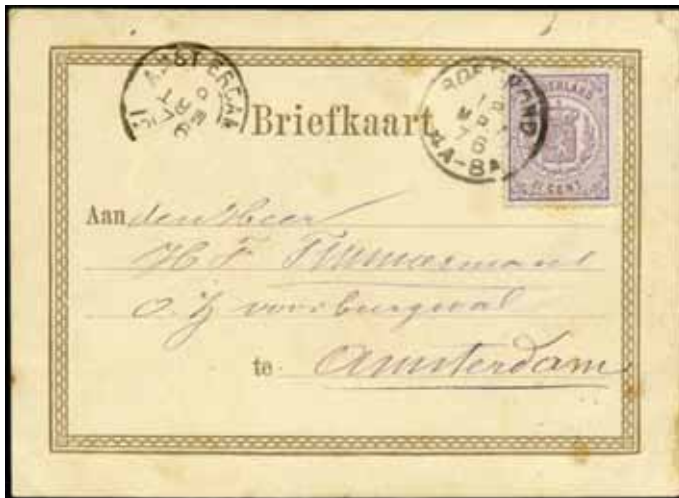 AMSTERDAM
Briefkaart
NEDERLAND
CENT.
Aan den Heer
H F Timmermans
O. Z voorburgwal
te Amsterdam